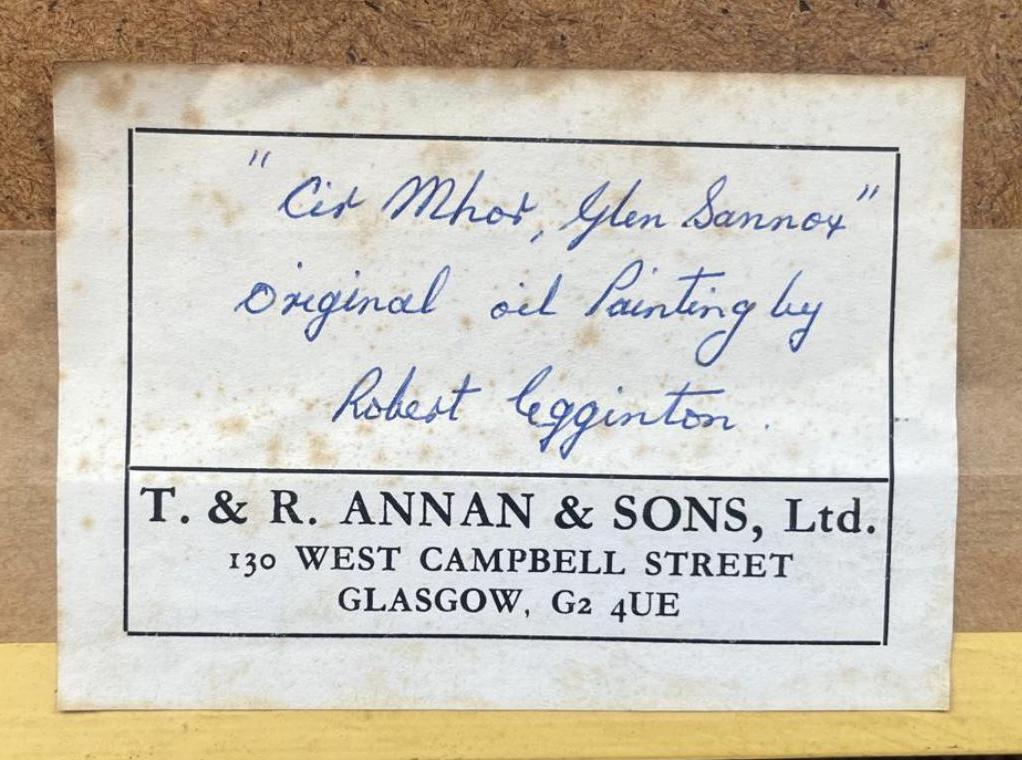 "Cir Mhor, Glen Sannox"
Original oil Painting by
Robert Egginton.
T. & R. ANNAN & SONS, Ltd.
130 WEST CAMPBELL STREET
GLASGOW, G2 4UE